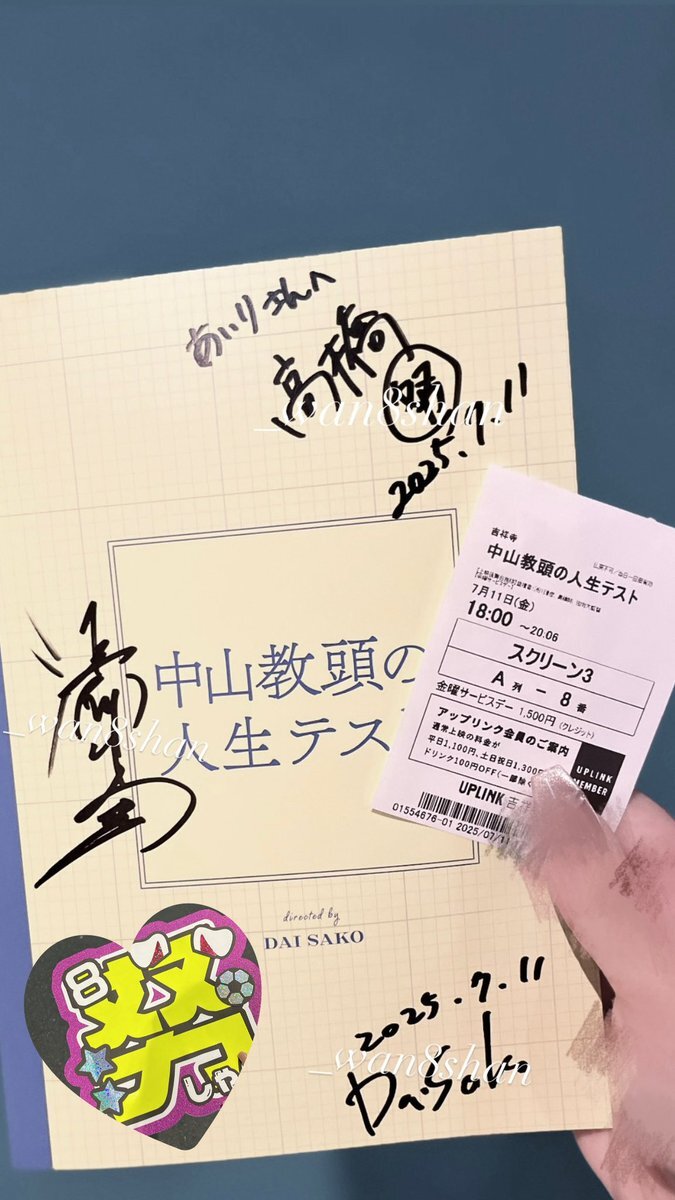 あいりさんへ
高橋
2025.7.11
_wan8shan
吉祥寺
中山教頭の人生テスト
7月11日(金)
18:00 ~20:06
スクリーン3
A 列 ー 8 番
金曜サービスデー 1,500円 (クレジット)
アップリンク会員のご案内
通常上映の料金が
平日1,100円、土日祝日1,300円
ドリンク100円OFF(一部除く
UPLINK
MEMBER
UPLINK 吉祥
01554676-01 2025/07/1
中山教頭の
人生テスト
_wan8shan
directed by
DAI SAKO
8
努
しゃ
2025.7.11
Dai Sako
_wan8shan